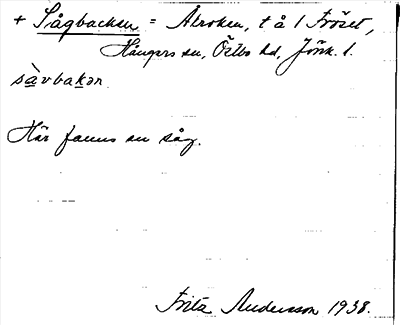 + Sågbacken = Akroken, t å 1 Fröset,
Hångers sn, Östbo hd, Jönk. l.
sàvbakən
Här fanns en såg.
Fritz Andersson 1938.